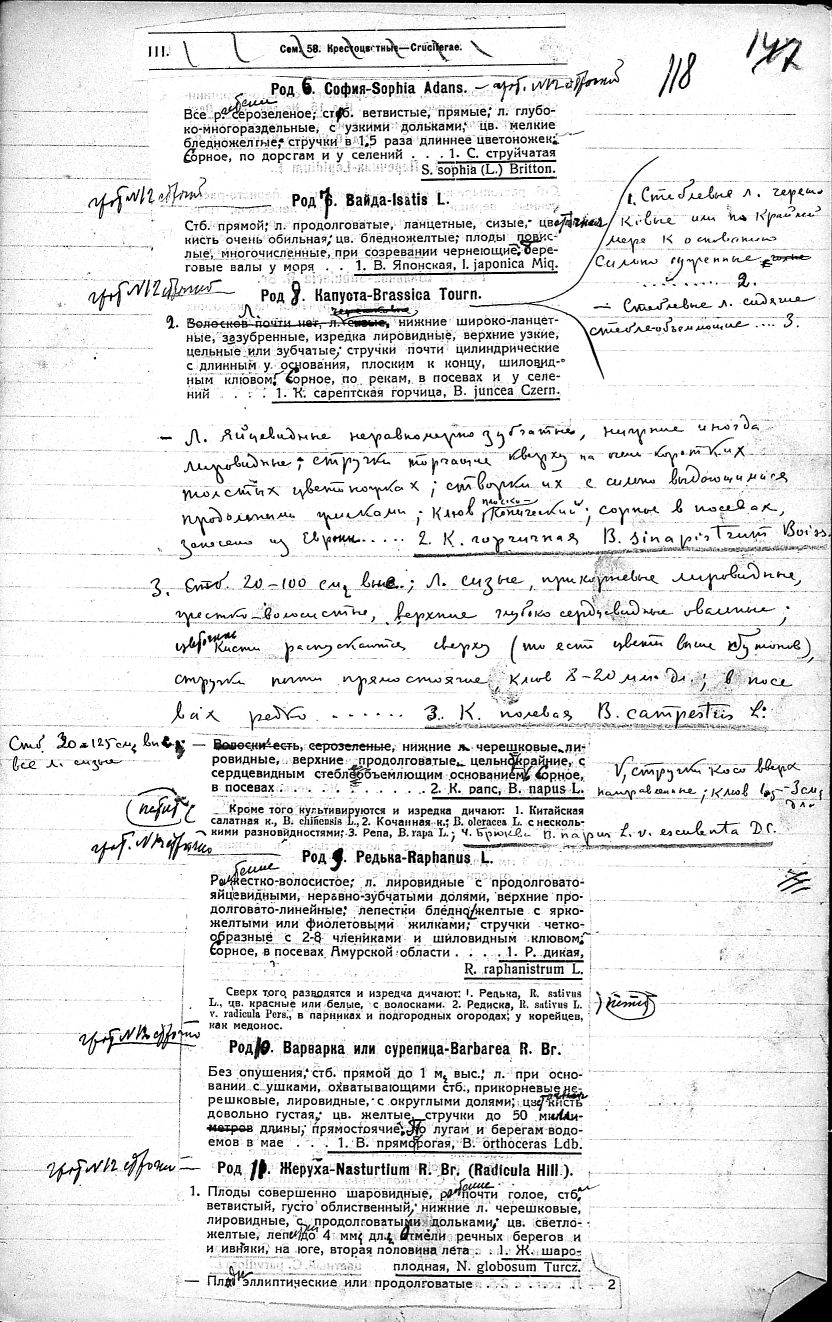 III. Сем. 58. Крестоцветные—Cruciferae.
118
147
Род 6. София-Sophia Adans. —
Все р. серозеленое; стб. ветвистые, прямые; л. глубо-
ко-многораздельные, с узкими дольками; цв. мелкие
бледножелтые; стручки в 1,5 раза длиннее цветоножек.
Сорное, по дорогам и у селений . . . 1. С. струйчатая
S. sophia (L.) Britton.
Род 7. Вайда-Isatis L.
Стб. прямой; л. продолговатые, ланцетные, сизые, цветочная
кисть очень обильная; цв. бледножелтые; плоды повис-
лые, многочисленные, при созревании чернеющие, бере-
говые валы у моря . . 1. В. Японская, I. japonica Miq.
Род 8. Капуота-Brassica Tourn.
1. Стеблевые л. череш
ковые или по крайней
мере к основанию
сильно суженные
. . . . . . . . 2.
— Стеблевые л. сидячие
стеблеобъемлющие .... 3.
2. Волосков почти нет, л. черешковые, нижние широко-ланцет-
ные, зазубренные, изредка лировидные, верхние узкие,
цельные или зубчатые; стручки почти цилиндрические
с длинным у основания, плоским к концу, шиловид-
ным клювом. Сорное, по рекам, в посевах и у селе-
ний . . . : 1. К. сарептская горчица, B. juncea Czern.
— Л. яйцевидные неравномерно зубчатые, нижние иногда
лировидные; стручки торчащие кверху на очень коротких
толстых цветоножках; створки их с сильно выдающимися
продольными жилками; клюв плоско-конический; сорное в посевах,
занесено из Европы..... 2. К. горчичная B. sinapistrum Boiss.
3. Стб. 20–100 см, выс.; Л. сизые, прикорневые лировидные,
жестко-волосистые, верхние глубоко сердцевидные овальные;
цветочные кисти распускаются сверху (то есть цветы выше бутонов),
стручки почти прямостоячие, клюв 8–20 мм. дл.; в посе
вах редко ....... 3. К. полевая B. campestris L.
Стб. 30–125 см, выс.;
все л. сизые
— Волоски есть, серозеленые, нижние л. черешковые, ли-
ровидные, верхние продолговатые, цельнокрайние, с
сердцевидным стеблеобъемлющим основанием. Сорное,
в посевах . . . . . . . . . . . 2. К. рапс, B. napus L.
V, стручки косо вверх
направленные; клюв
дл.
(петит)
Кроме того культивируются и изредка дичают: 1. Китайская
салатная к., B. chinensis L., 2. Кочанная к.; B. oleracea L. с несколь-
кими разновидностями; 3. Репа, B. rapa L.; 4. Брюква B. napus L. v. esculenta DC.
Род 9. Редька-Raphanus L.
Растение жестко-волосистое; л. лировидные с продолговато-
яйцевидными, неравно-зубчатыми долями, верхние про-
долговато-линейные; лепестки бледножелтые с ярко-
желтыми или фиолетовыми жилками; стручки четко-
образные с 2-8 члениками и шиловидным клювом.
Сорное, в посевах Амурской области . . . . 1. Р. дикая,
R. raphanistrum L.
Сверх того разводятся и изредка дичают: 1. Редька, R. sativus
L., цв. красные или белые, с волосками. 2. Редиска, R. sativus L.
v. radicula Pers., в парниках и подгородных огородах; у корейцев,
как медонос.
) петит
Род 10. Варварка или сурепица-Barbarea R. Br.
Без опушения; стб. прямой до 1 м, выс.; л. при осно-
вании с ушками, охватывающими стб., прикорневые че-
решковые, лировидные, с округлыми долями; цветочная кисть
довольно густая, цв. желтые, стручки до 50 милли-
метров длины, прямостоячие. По лугам и берегам водо-
емов в мае . . . 1. В. пряморогая, B. orthoceras Ldb.
Род 11. Жеруха-Nasturtium R. Br. (Radicula Hill.).
1. Плоды совершенно шаровидные, растение почти голое, стб.
ветвистый, густо облиственный, нижние л. черешковые,
лировидные, с продолговатыми дольками; цв. светло-
желтые, лепестки до 4 мм, дл. Отмели речных берегов и
и ивняки, на юге, вторая половина лета . : 1. Ж. шаро-
плодная, N. globosum Turcz.
— Плоды эллиптические или продолговатые . . . . . . . . . 2